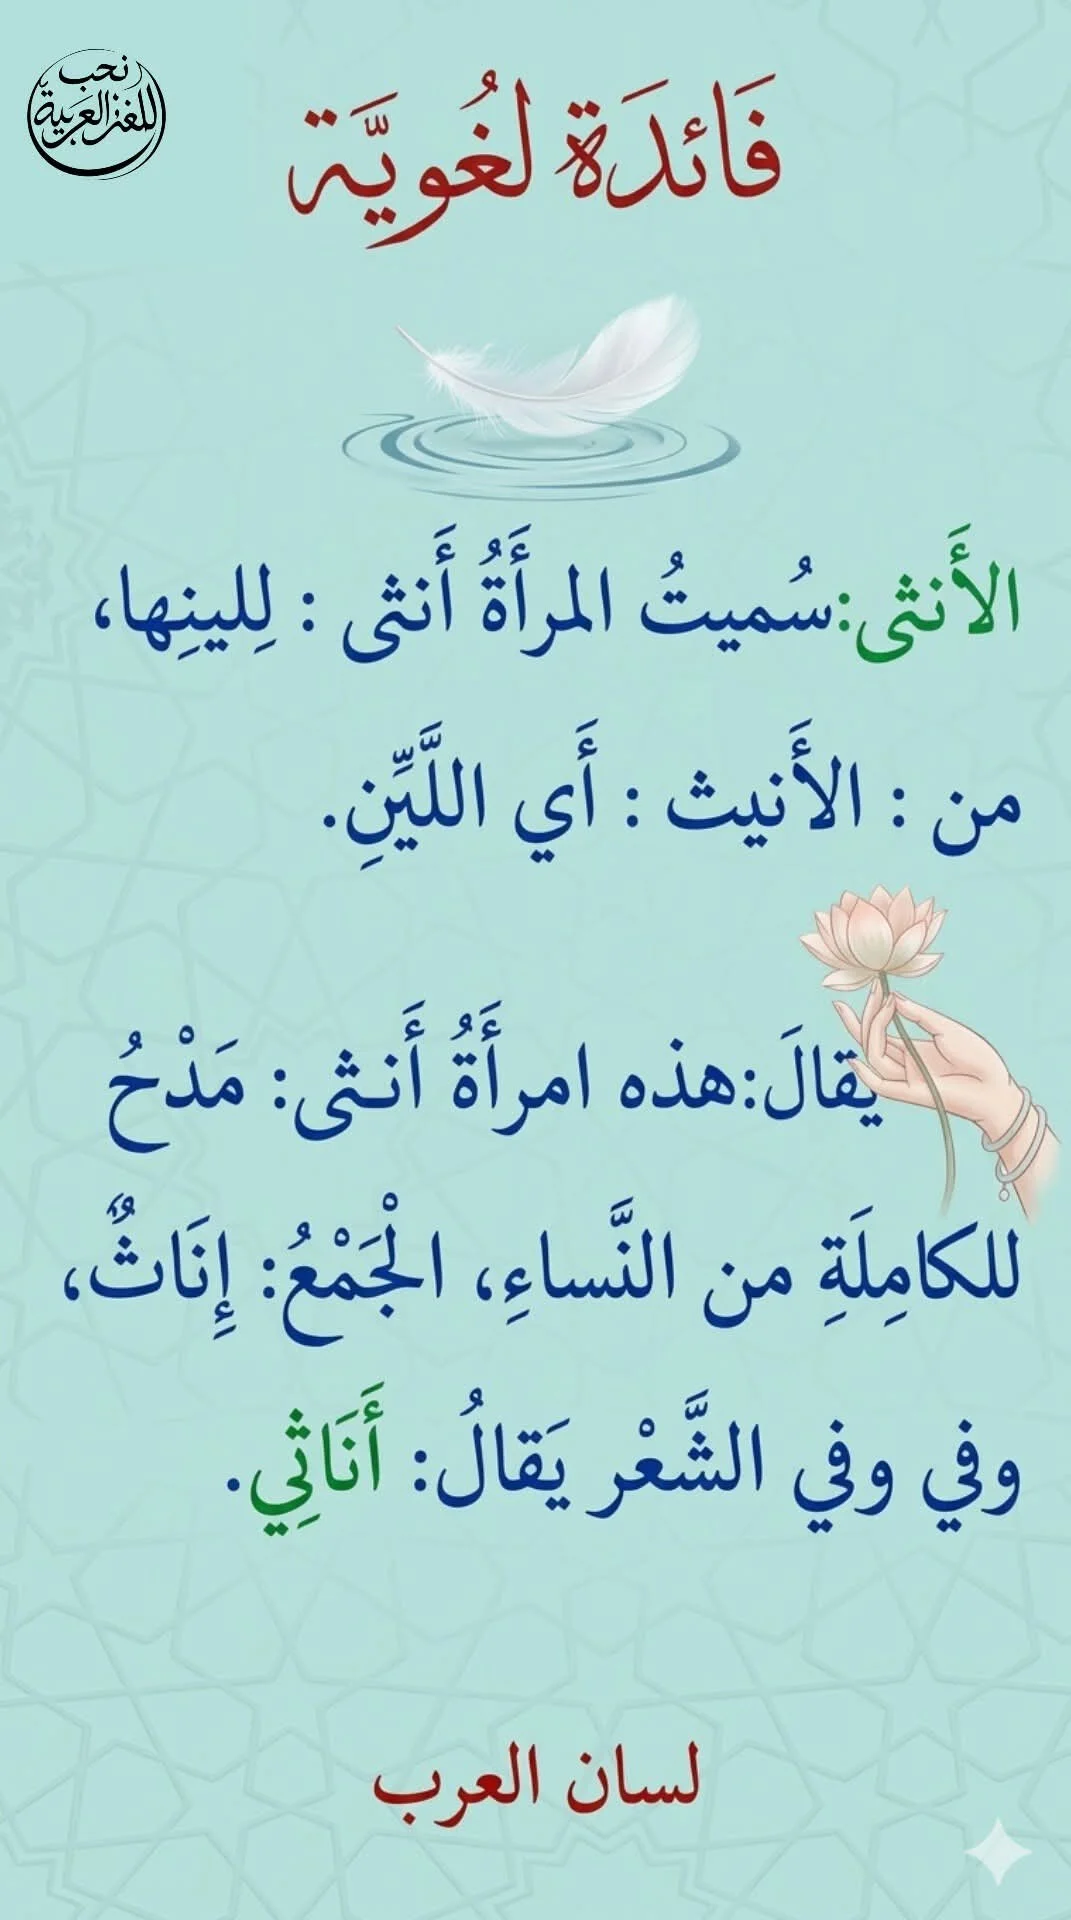 نحب
اللغة العربية
فَائدَة لغُويَّة
الأَنثى:سُميتُ المرأَةُ أَنثى : لِلينِها،
من : الأَنيث : أَي اللَّيِّنِ.
يقالَ:هذه امرأَةُ أَنـثى: مَدْحُ
للكامِلَةِ من النَّساءِ، الْجَمْعُ: إِنَاثٌ،
وفي وفي الشَّعْر يَقالُ: أَنَاثِي.
لسان العرب